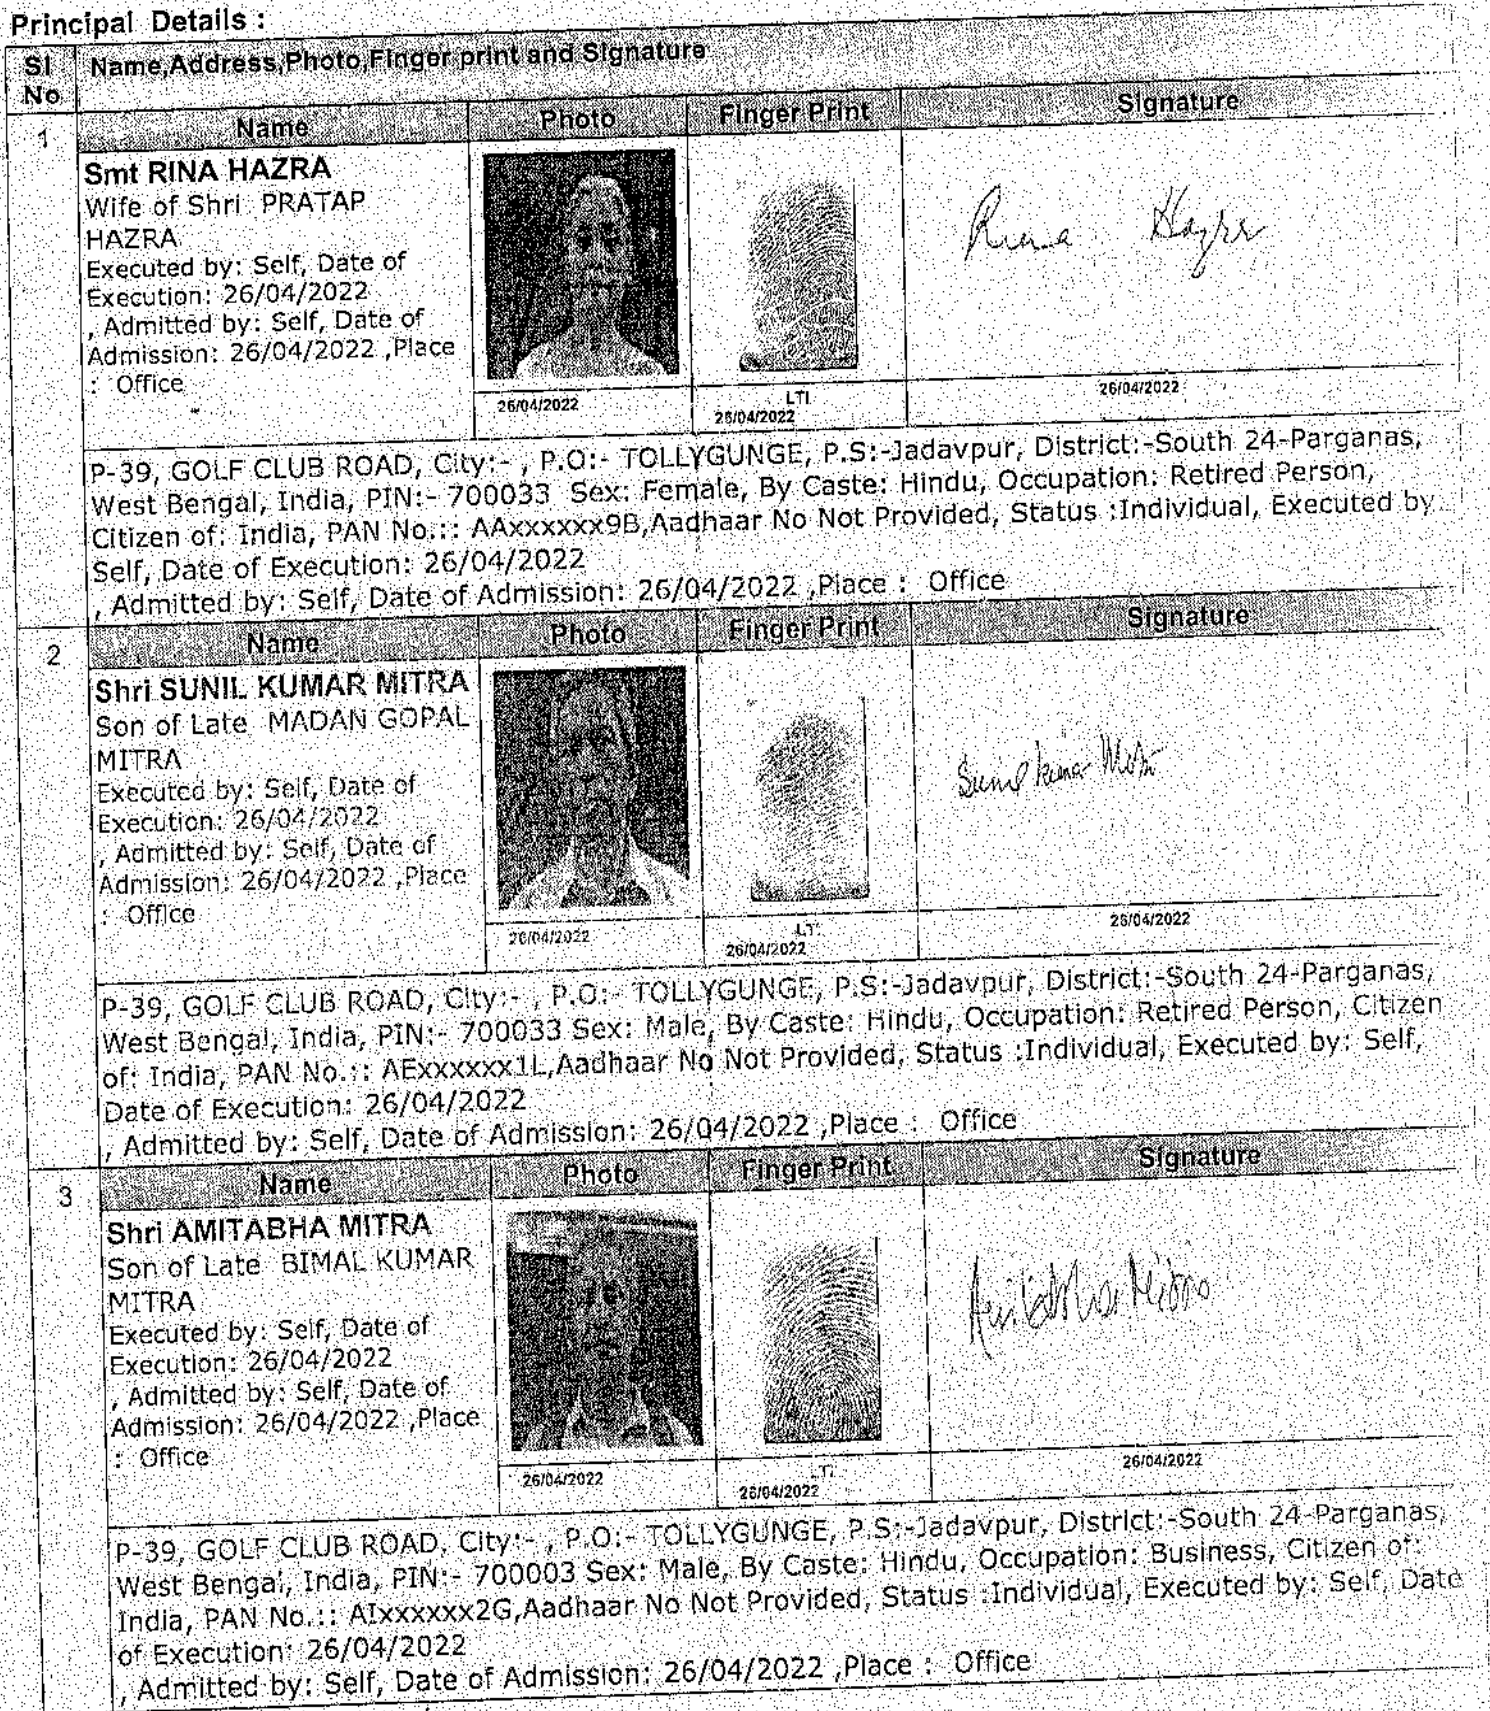 Principal Details :
Sl No Name,Address,Photo,Finger print and Signature
1 Name Photo Finger Print Signature
Smt RINA HAZRA
Wife of Shri PRATAP
HAZRA
Executed by: Self, Date of
Execution: 26/04/2022
, Admitted by: Self, Date of
Admission: 26/04/2022 ,Place
: Office
Rina Hazra
26/04/2022 LTI 26/04/2022 26/04/2022
P-39, GOLF CLUB ROAD, City:- , P.O:- TOLLYGUNGE, P.S:-Jadavpur, District:-South 24-Parganas,
West Bengal, India, PIN:- 700033 Sex: Female, By Caste: Hindu, Occupation: Retired Person,
Citizen of: India, PAN No.:: AAxxxxxx9B,Aadhaar No Not Provided, Status :Individual, Executed by
Self, Date of Execution: 26/04/2022
, Admitted by: Self, Date of Admission: 26/04/2022 ,Place : Office
2 Name Photo Finger Print Signature
Shri SUNIL KUMAR MITRA
Son of Late MADAN GOPAL
MITRA
Executed by: Self, Date of
Execution: 26/04/2022
, Admitted by: Self, Date of
Admission: 26/04/2022 ,Place
: Office
Sunil Kumar Mitra
26/04/2022 LTI 26/04/2022 26/04/2022
P-39, GOLF CLUB ROAD, City:- , P.O:- TOLLYGUNGE, P.S:-Jadavpur, District:-South 24-Parganas,
West Bengal, India, PIN:- 700033 Sex: Male, By Caste: Hindu, Occupation: Retired Person, Citizen
of: India, PAN No.:: AExxxxxx1L,Aadhaar No Not Provided, Status :Individual, Executed by: Self,
Date of Execution: 26/04/2022
, Admitted by: Self, Date of Admission: 26/04/2022 ,Place : Office
3 Name Photo Finger Print Signature
Shri AMITABHA MITRA
Son of Late BIMAL KUMAR
MITRA
Executed by: Self, Date of
Execution: 26/04/2022
, Admitted by: Self, Date of
Admission: 26/04/2022 ,Place
: Office
Amitabha Mitra
26/04/2022 LTI 26/04/2022 26/04/2022
P-39, GOLF CLUB ROAD, City:- , P.O:- TOLLYGUNGE, P.S:-Jadavpur, District:-South 24-Parganas,
West Bengal, India, PIN:- 700003 Sex: Male, By Caste: Hindu, Occupation: Business, Citizen of:
India, PAN No.:: AIxxxxxx2G,Aadhaar No Not Provided, Status :Individual, Executed by: Self, Date
of Execution: 26/04/2022
, Admitted by: Self, Date of Admission: 26/04/2022 ,Place : Office